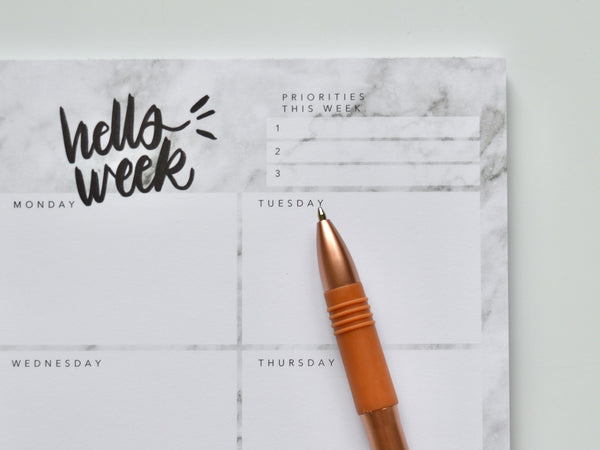 hello
week
PRIORITIES
THIS WEEK
1
2
3
MONDAY
TUESDAY
WEDNESDAY
THURSDAY